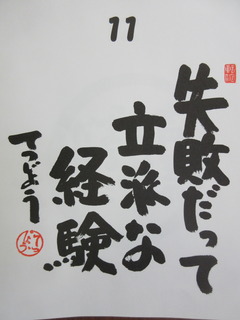 11
失敗だって
立派な
経験
てつじょう